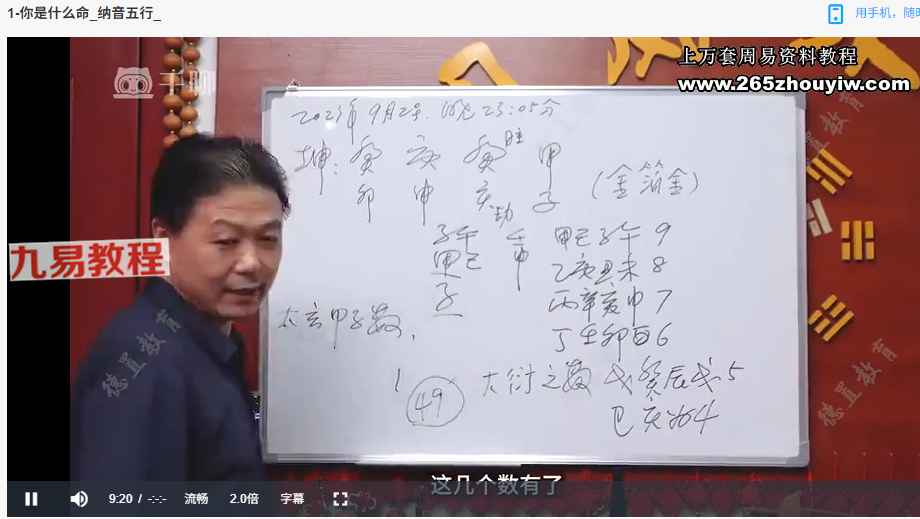 1-你是什么命_纳音五行_
用手机，随时
上万套周易资料教程
www.265zhouyiw.com
千聊
2023年9月2号. 晚 23:05分
坤: 癸 庚 癸 甲
卯 申 亥 子
(金箔金)
劫
子午
甲己
子
甲己子午 9
乙庚丑未 8
丙辛寅申 7
丁壬卯酉 6
戊癸辰戌 5
巳亥为4
太玄甲子数,
大衍之数
49
九易教程
德置教育
德置教育
德置教育
这几个数有了
9:20 / -:-:-
流畅
2.0倍
字幕